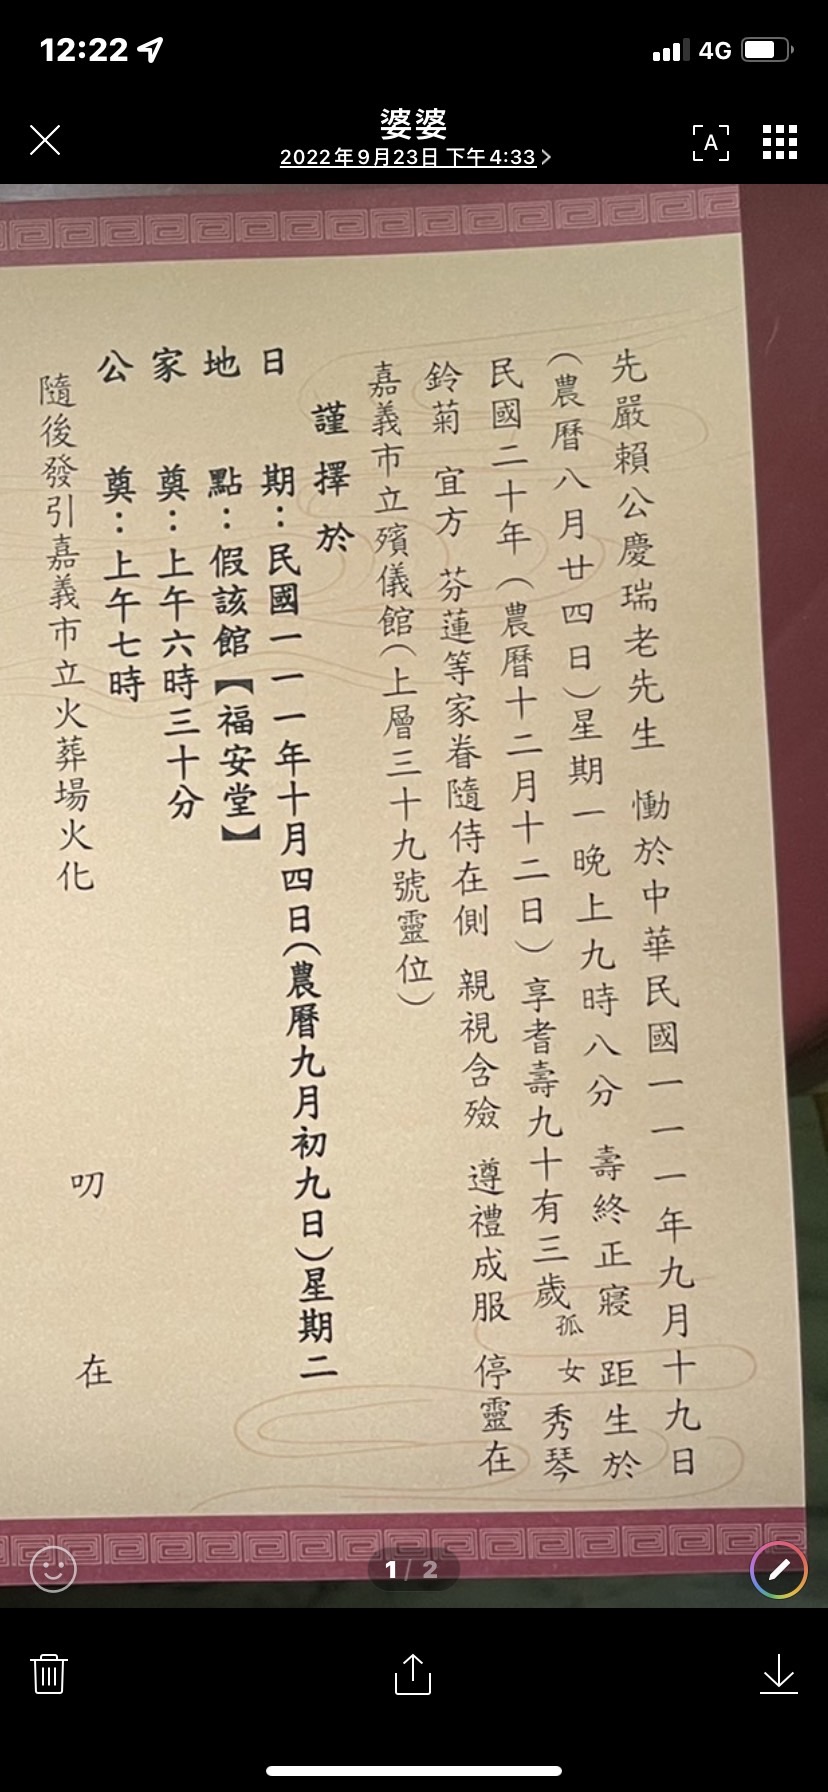 12:22
4G
婆婆
2022年9月23日 下午4:33
A
先嚴賴公慶瑞老先生 慟於中華民國一一一年九月十九日
（農曆八月廿四日）星期一晚上九時八分 壽終正寢 距生於
民國二十年（農曆十二月十二日）享耆壽九十有三歲孤女秀琴
鈴菊 宜方 芬蓮等家眷隨侍在側 親視含殮 遵禮成服 停靈在
嘉義市立殯儀館（上層三十九號靈位）
謹擇於
日期：民國一一一年十月四日（農曆九月初九日）星期二
地點：假該館【福安堂】
家奠：上午六時三十分
公奠：上午七時
隨後發引嘉義市立火葬場火化
叨在
1 / 2